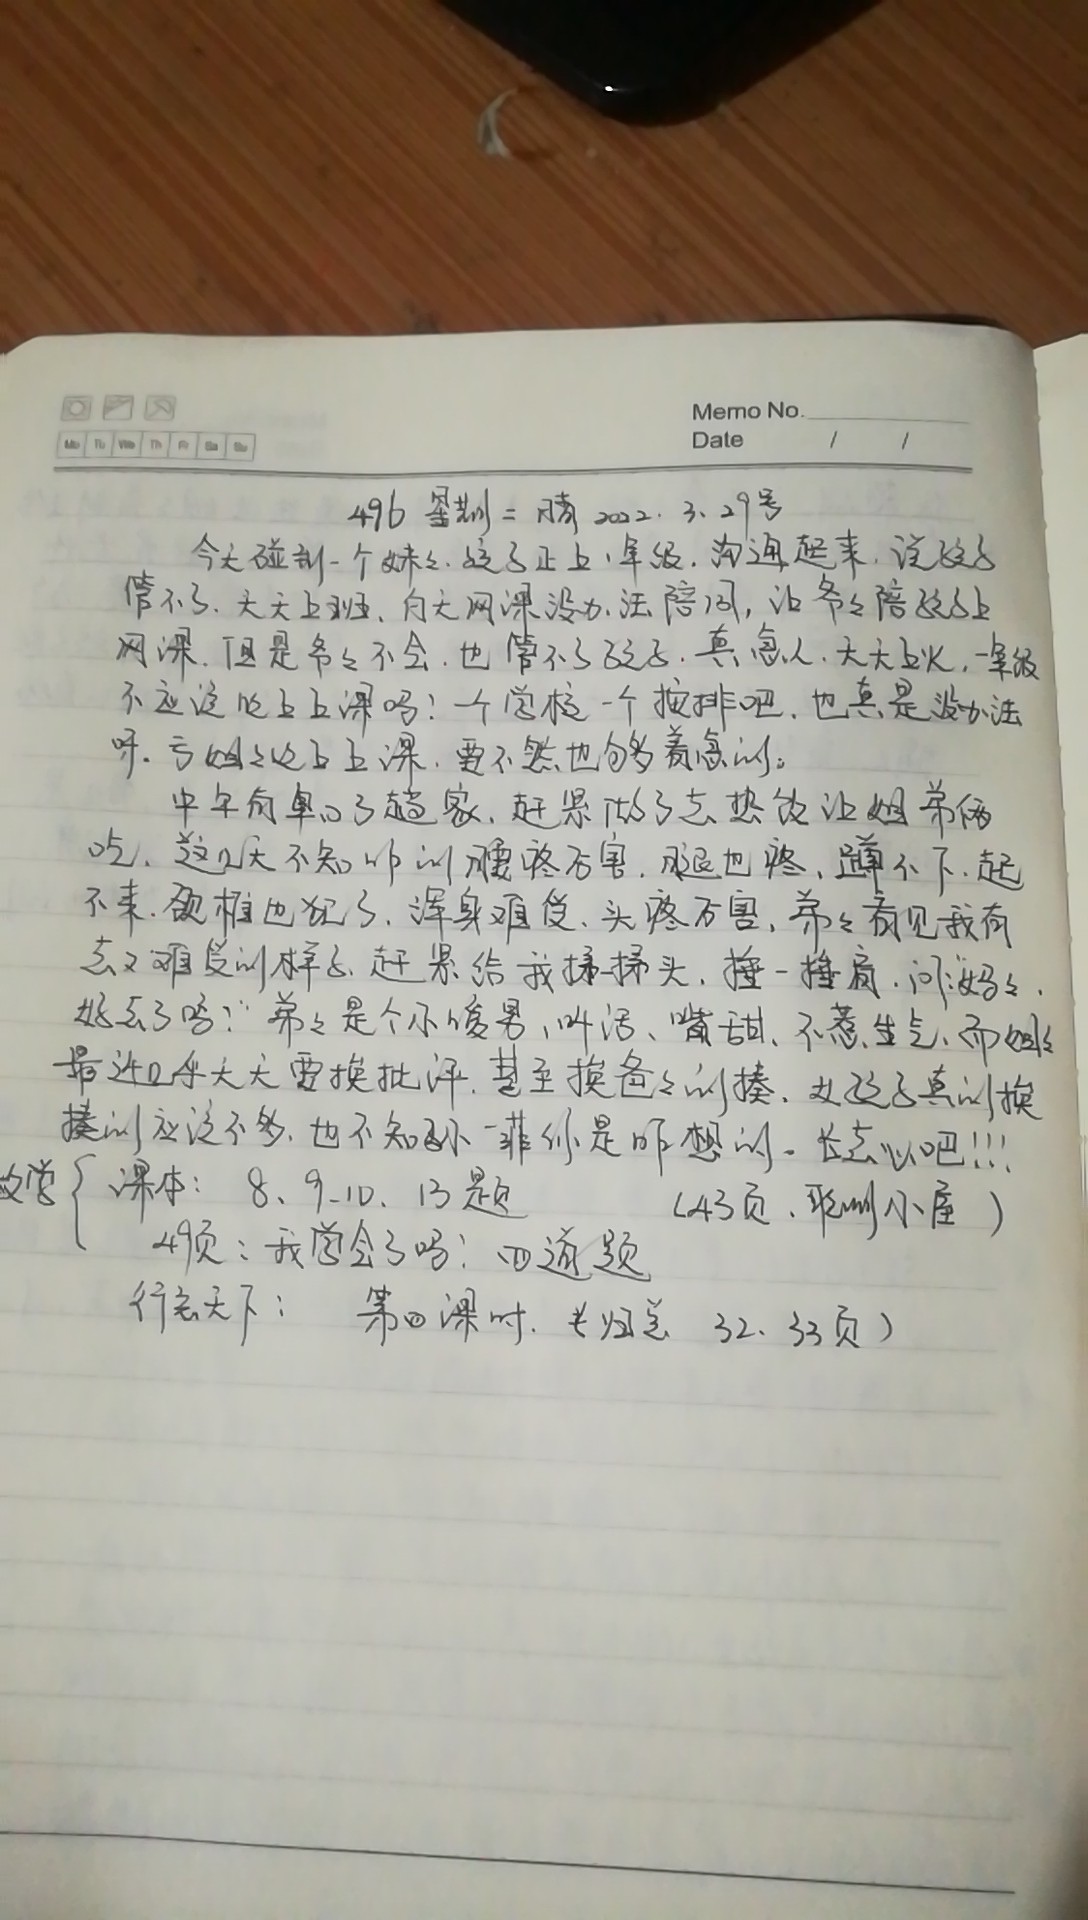 Memo No.
Mo Tu We Th Fr Sa Su
Date / /
496 星期二 晴 2022.3.29号
今天碰到一个妹々.孩子正上一年级.沟通起来.说孩子
管不了.天天上班.白天网课没办法陪同,让爷々陪孩子上
网课.但是爷々不会.也管不了孩子.真急人.天天上火.一年级
不应该晚上上课吗!一个学校一个按排吧.也真是没办法
呀.亏姐々晚上上课.要不然也够着急的。
中午有单回了趟家.赶紧做了点热饭让姐弟俩
吃.这几天不知咋的腰疼厉害.腿也疼、蹲不下.起
不来.颈椎也犯了.浑身难受、头疼厉害,弟々看见我有
点々难受的样子.赶紧给我揉揉头.捶一捶肩.问:妈々.
好点了吗?"弟々是个小暖男,叫活、嘴甜、不惹生气.而姐々
最近几乎天天要挨批评.甚至挨爸々的揍.女孩子真的挨
揍的应该不多.也不知 小菲你是咋想的.长点心吧!!!
数学 课本: 8、9、10、13题 (43页.聪明小屋)
49页:我学会了吗?四道题
行知天下: 第四课时. 32、33页)